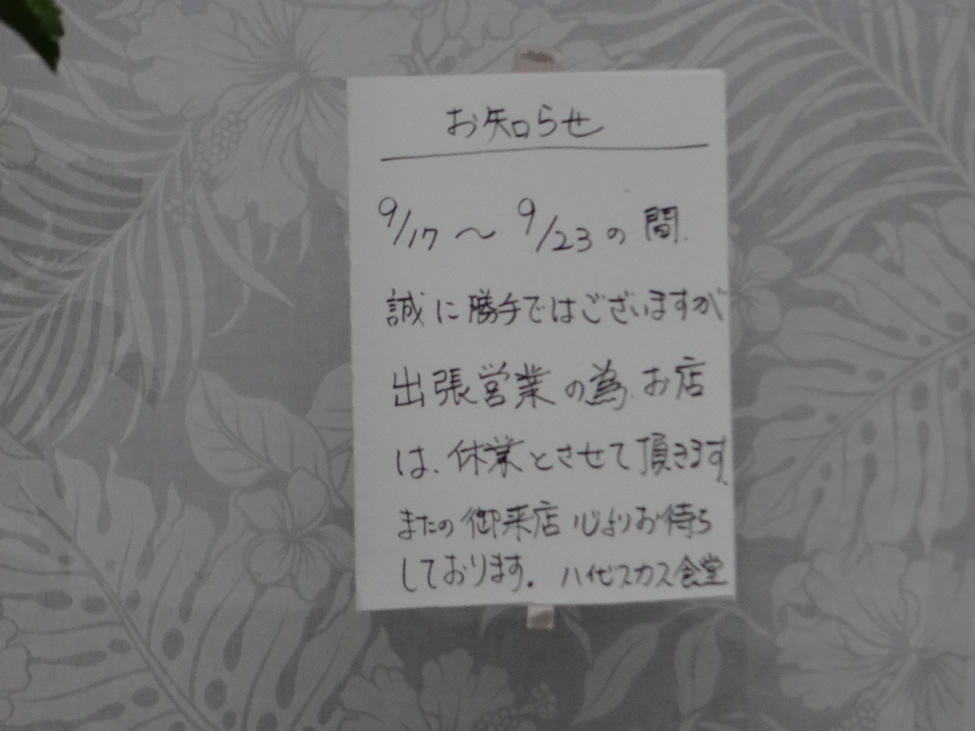 お知らせ
9/17 〜 9/23 の 間.
誠に勝手ではございますが
出張営業の為.お店
は、休業とさせて頂きます。
またの御来店心よりお待ち
しております。ハイビスカス食堂